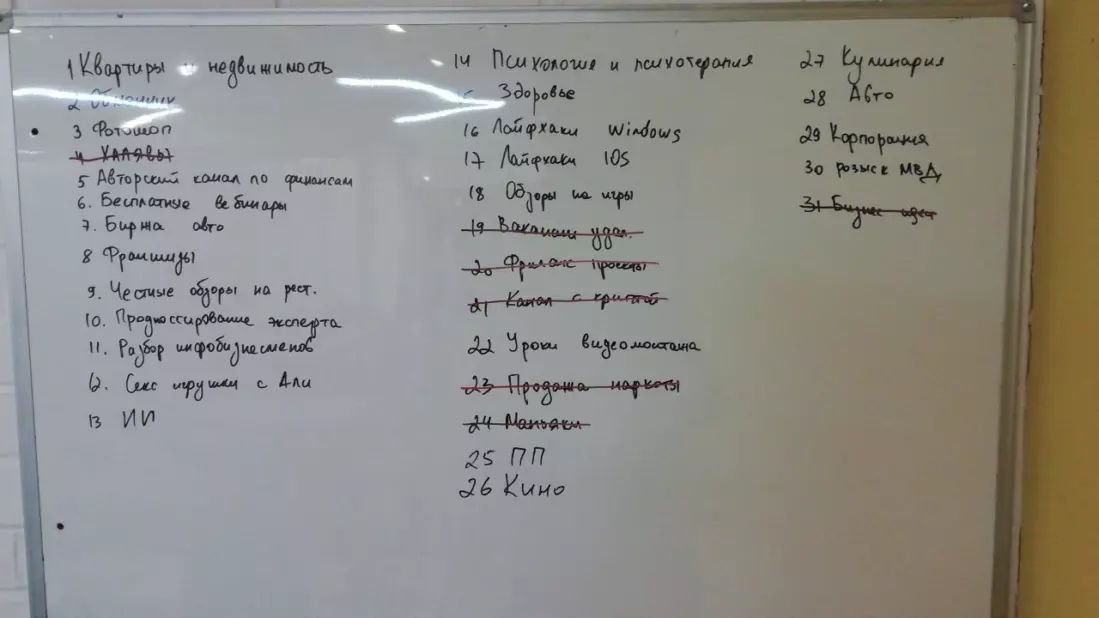 1 Квартиры и недвижимость
2 Обменник
3 Фотошоп
4 Халявы
5 Авторский канал по финансам
6. Бесплатные вебинары
7. Биржа авто
8 Франшизы
9. Честные обзоры на рест.
10. Прогнозсирование эксперта
11. Разбор инфобизнесменов
12. Секс игрушки с Али
13 ИИ
14 Психология и психотерапия
15 Здоровье
16 Лайфхаки Windows
17 Лайфхаки IOS
18 Обзоры на игры
19 Вакансии удал.
20 Фриланс проекты
21 Канал с критой
22 Уроки видеомонтажа
23 Продажа наркоты
24 Маньяки
25 ПП
26 Кино
27 Кулинария
28 Авто
29 Корпорация
30 розыск МВД
31 Бизнес идеи